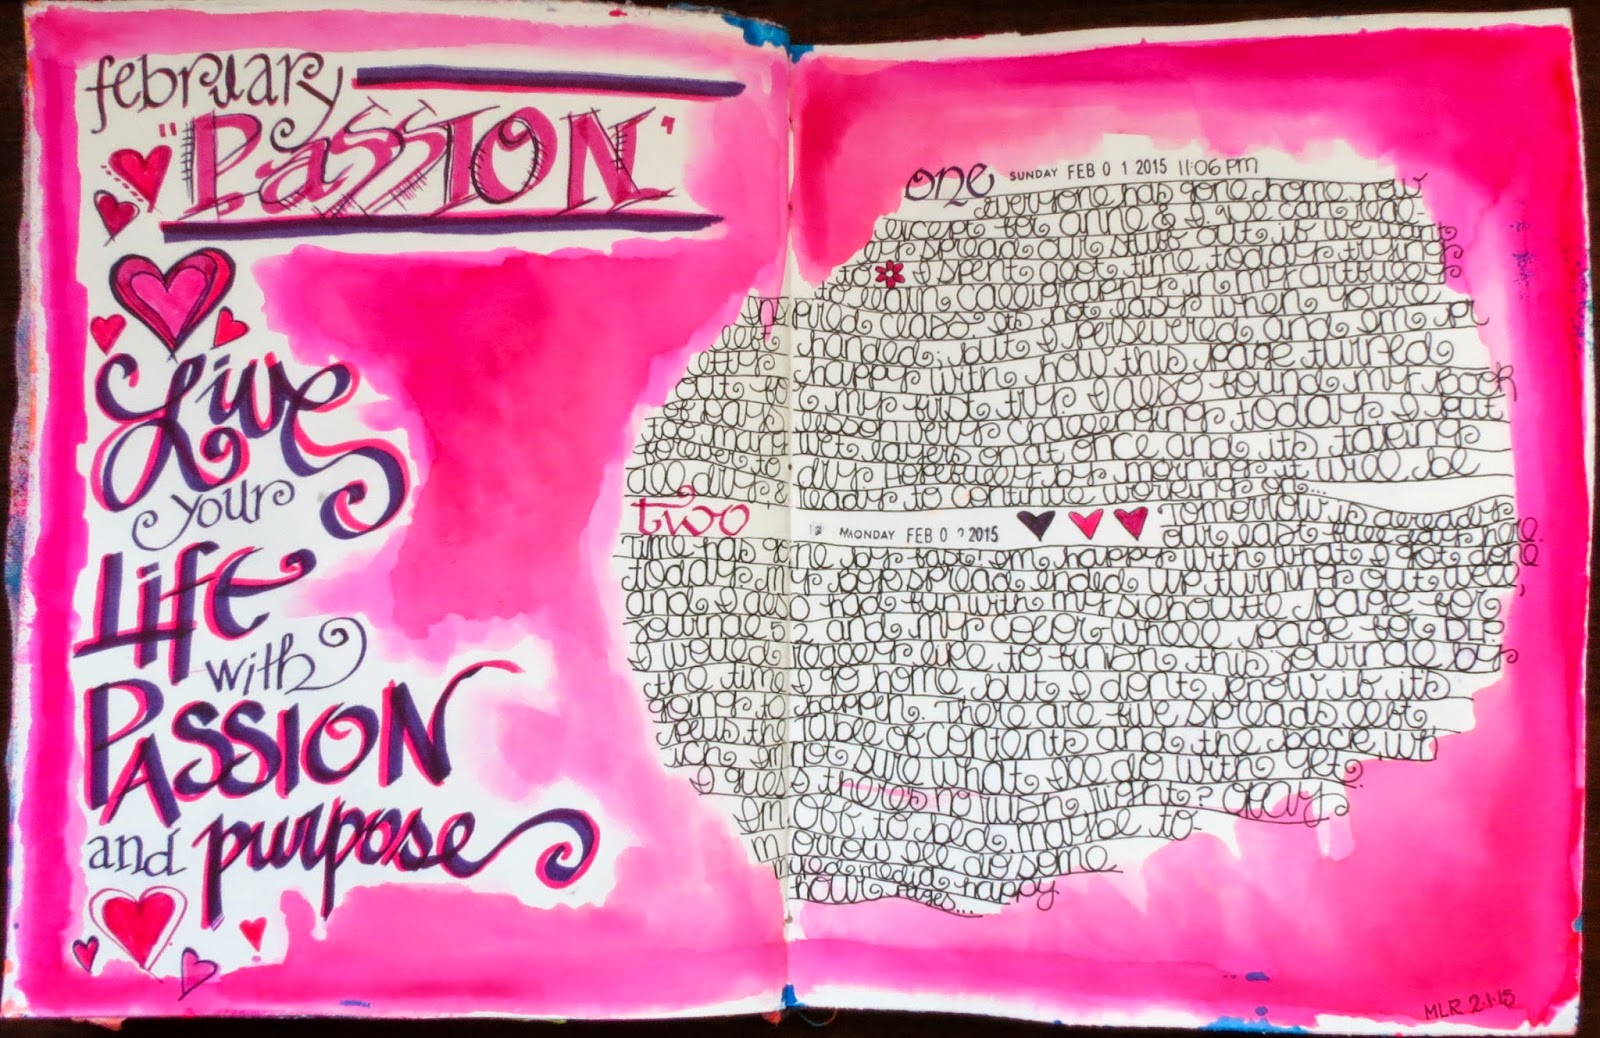 february
"PassION"
Live
your
Life
with
PASSION
and purpose
one SUNDAY FEB 0 1 2015 11:06 PM
everyone has gone home now
except for anne & I. we can real-
ly spread our stuff out if we want
to I spent a lot of time today trying
calligraphy in my artfully
inspired class it's not easy when you're
left handed, but I persevered and I'm pr
etty happy with how this page turned
out for my first try I also found my book
of days also very challenging today I put
too many wet layers on at once and it's taking
forever to dry hopefully by morning it will be
all dry & ready to continue working on...
two MONDAY FEB 0 2 2015 Tomorrow is already
our last full day here.
Time has gone by fast. I'm happy with what I got done
today. my spread ended up turning out well,
and I also had fun with my silhouette page for
journal 52 and my color wheel page for DLP.
I would really like to finish this journal by
the time I go home but I don't know if it's
going to happen. There are five spreads left
plus the table of contents and the back wh
ich I'm not sure what I'll do with yet.
I guess there's no rush, right? Okay
I'm off to bed maybe to-
morrow I'll do some
mixed media happy
hour pages...
MLR 2.1.15